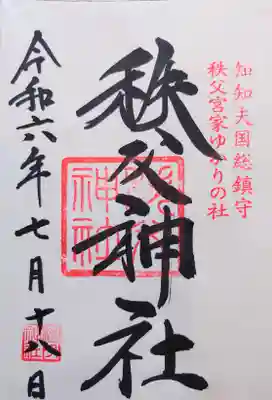 知知夫国総鎮守
秩父宮家ゆかりの社
秩父神社
令和六年七月十八日